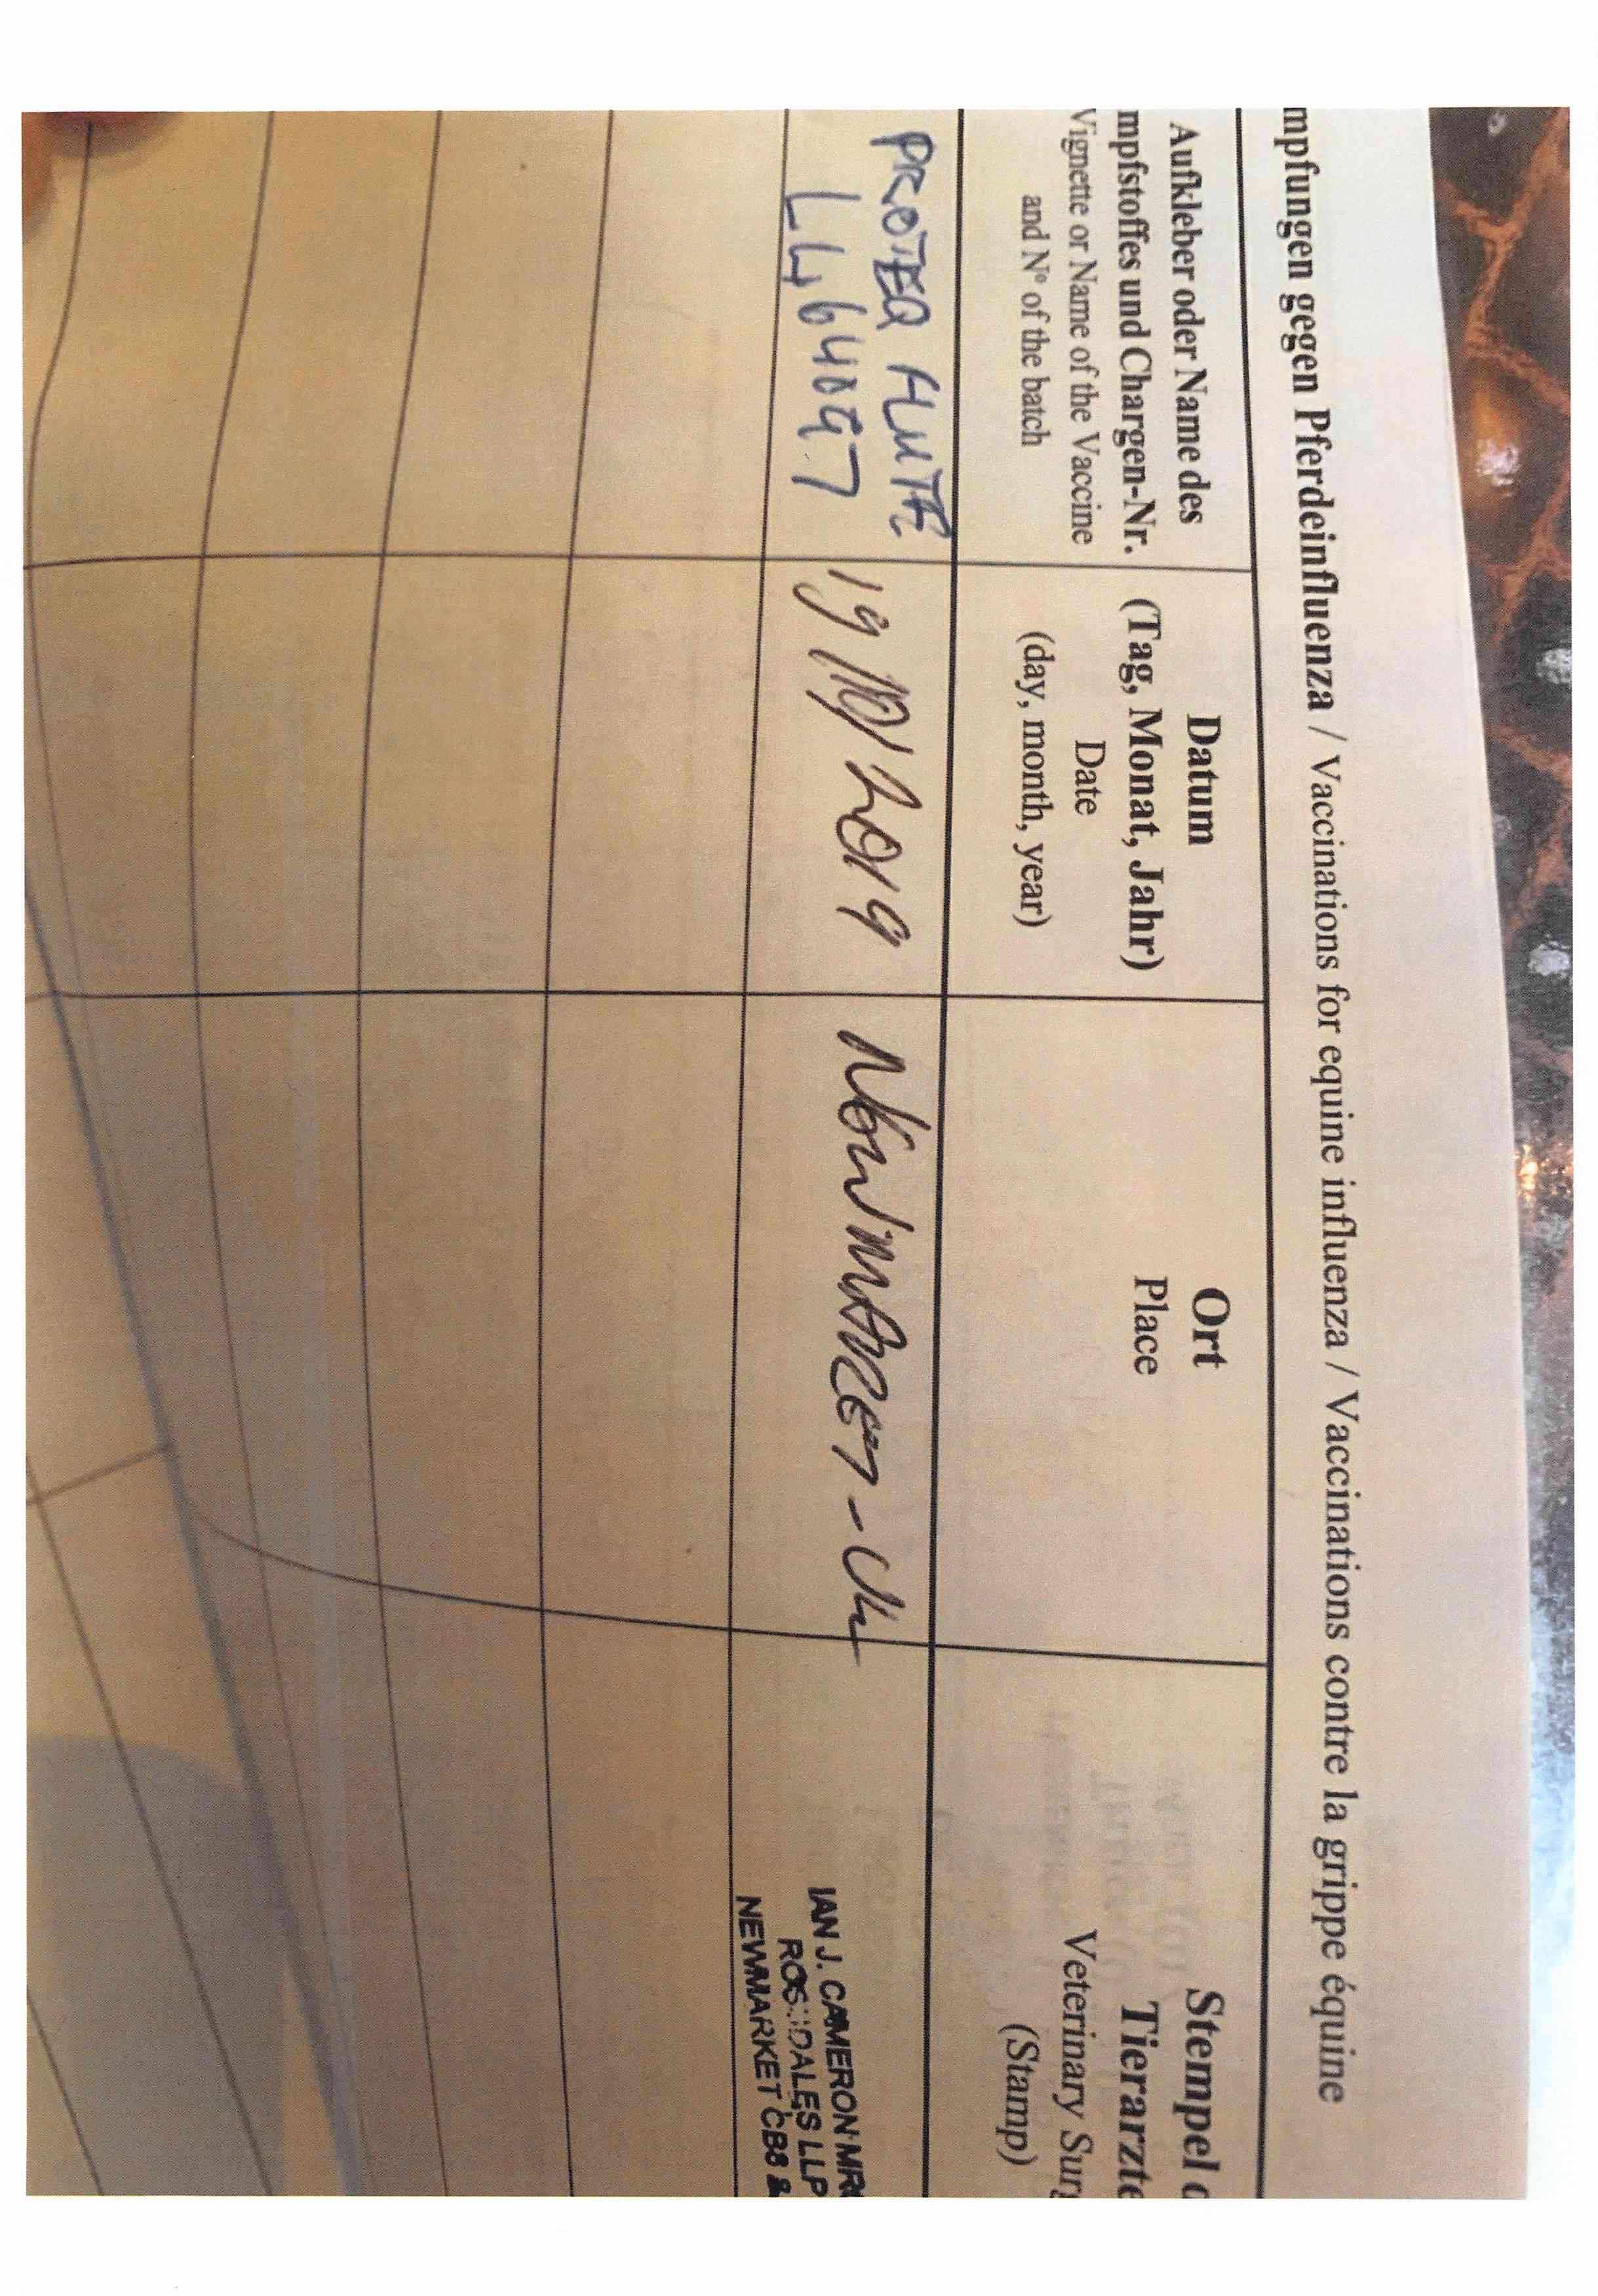 mpfungen gegen Pferdeinfluenza / Vaccinations for equine influenza / Vaccinations contre la grippe équine
Aufkleber oder Name des
mpfstoffes und Chargen-Nr.
Vignette or Name of the Vaccine
and N° of the batch
Datum
(Tag, Monat, Jahr)
Date
(day, month, year)
Ort
Place
Stempel d
Tierarzte
Veterinary Surg
(Stamp)
PROTEQ FLUTE
L464097
19/10/2019
NEWMARKET - UK
IAN J. CAMERON MR
ROSSDALES LLP
NEWMARKET CB8